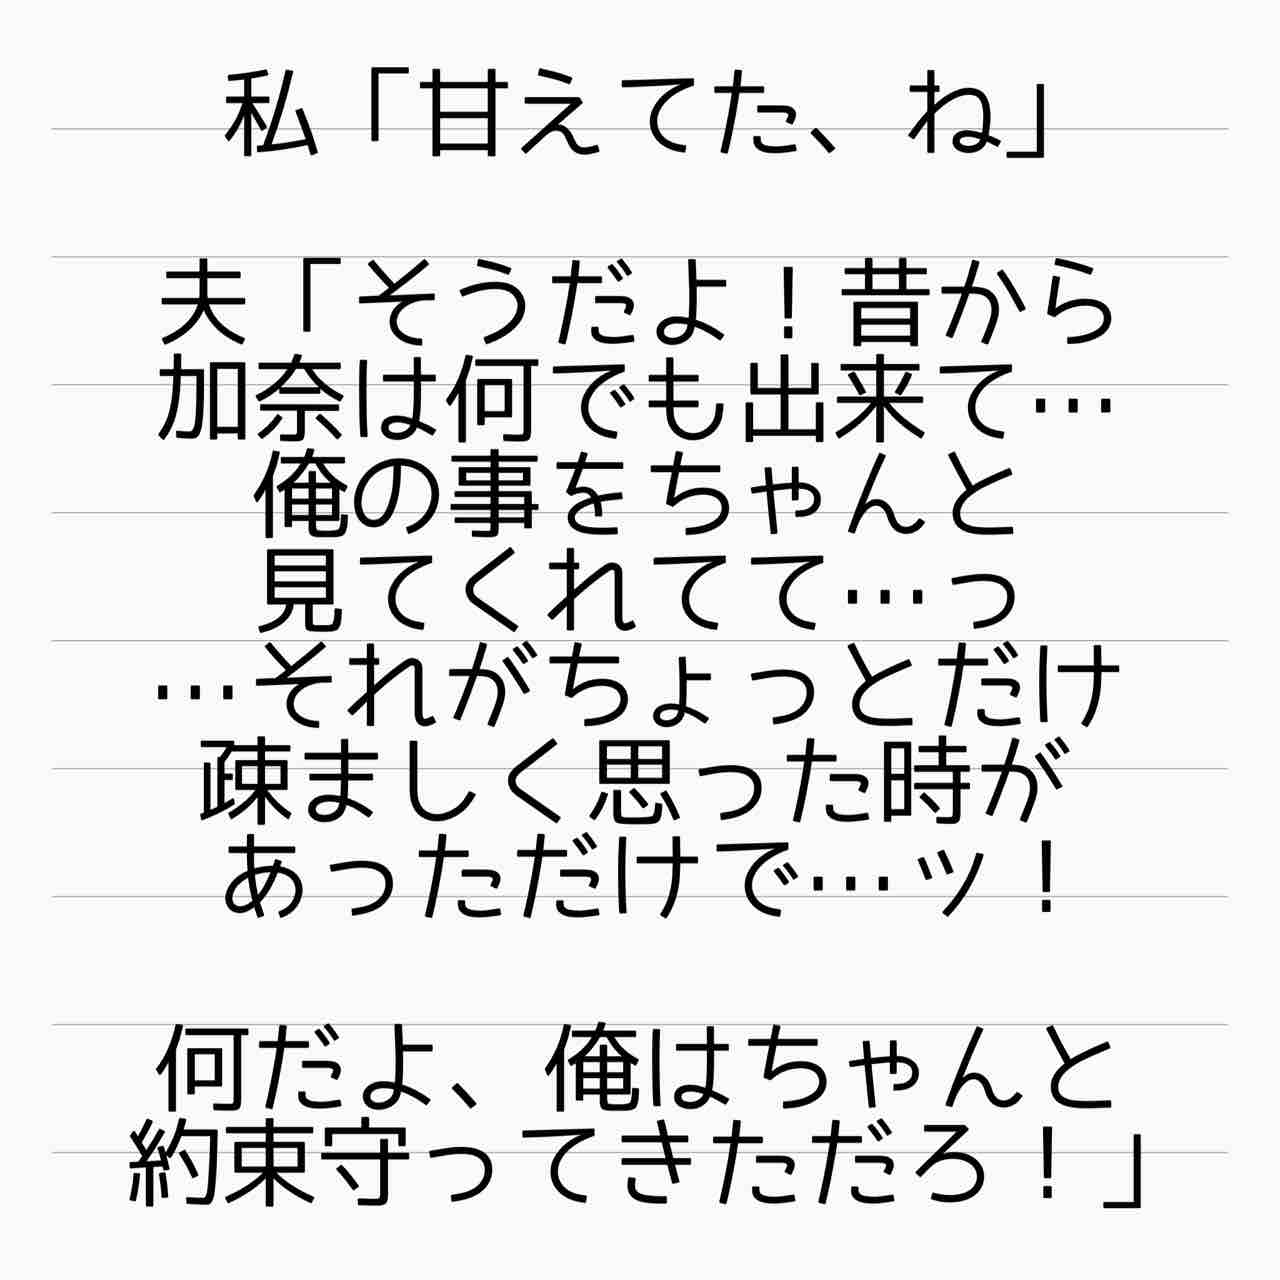 私「甘えてた、ね」
夫「そうだよ！昔から
加奈は何でも出来て…
俺の事をちゃんと
見てくれてて…っ
…それがちょっとだけ
疎ましく思った時が
あっただけで…ッ！
何だよ、俺はちゃんと
約束守ってきただろ！」